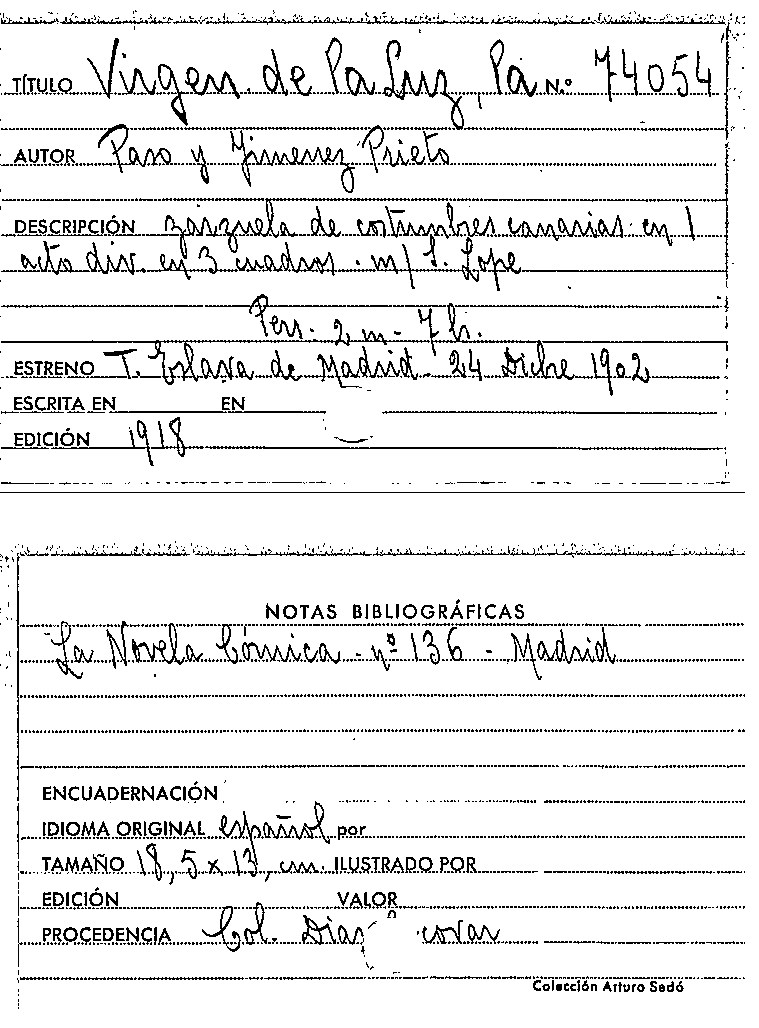 TÍTULO Virgen de la Luz, La N.º 74054
AUTOR Paso y Jimenez Prieto
DESCRIPCIÓN zarzuela de costumbres canarias en 1
acto div. en 3 cuadros - m/ S. Lope
Pers. 2 m - 7 h.
ESTRENO T. Eslava de Madrid 24 Dicbre 1902
ESCRITA EN EN
EDICIÓN 1918
NOTAS BIBLIOGRÁFICAS
La Novela Cómica - nº 136 - Madrid
ENCUADERNACIÓN
IDIOMA ORIGINAL español por
TAMAÑO 18,5 x 13, cm. ILUSTRADO POR
EDICIÓN VALOR
PROCEDENCIA Col. Diaz
Colección Arturo Sedó